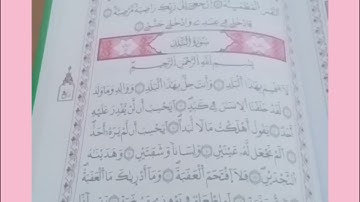 النَّفْسُ الْمُطْمَئِنَّةُ ۝ ارْجِعِي إِلَىٰ رَبِّكِ رَاضِيَةً مَّرْضِيَّةً ۝
فَادْخُلِي فِي عِبَادِي ۝ وَادْخُلِي جَنَّتِي ۝
سُورَةُ الْبَلَدِ
بِسْمِ اللَّهِ الرَّحْمَٰنِ الرَّحِيمِ
لَا أُقْسِمُ بِهَٰذَا الْبَلَدِ ۝ وَأَنتَ حِلٌّ بِهَٰذَا الْبَلَدِ ۝ وَوَالِدٍ وَمَا وَلَدَ ۝
لَقَدْ خَلَقْنَا الْإِنسَانَ فِي كَبَدٍ ۝ أَيَحْسَبُ أَن لَّن يَقْدِرَ عَلَيْهِ
أَحَدٌ ۝ يَقُولُ أَهْلَكْتُ مَالًا لُّبَدًا ۝ أَيَحْسَبُ أَن لَّمْ يَرَهُ أَحَدٌ ۝
أَلَمْ نَجْعَل لَّهُ عَيْنَيْنِ ۝ وَلِسَانًا وَشَفَتَيْنِ ۝ وَهَدَيْنَاهُ
النَّجْدَيْنِ ۝ فَلَا اقْتَحَمَ الْعَقَبَةَ ۝ وَمَا أَدْرَاكَ مَا الْعَقَبَةُ